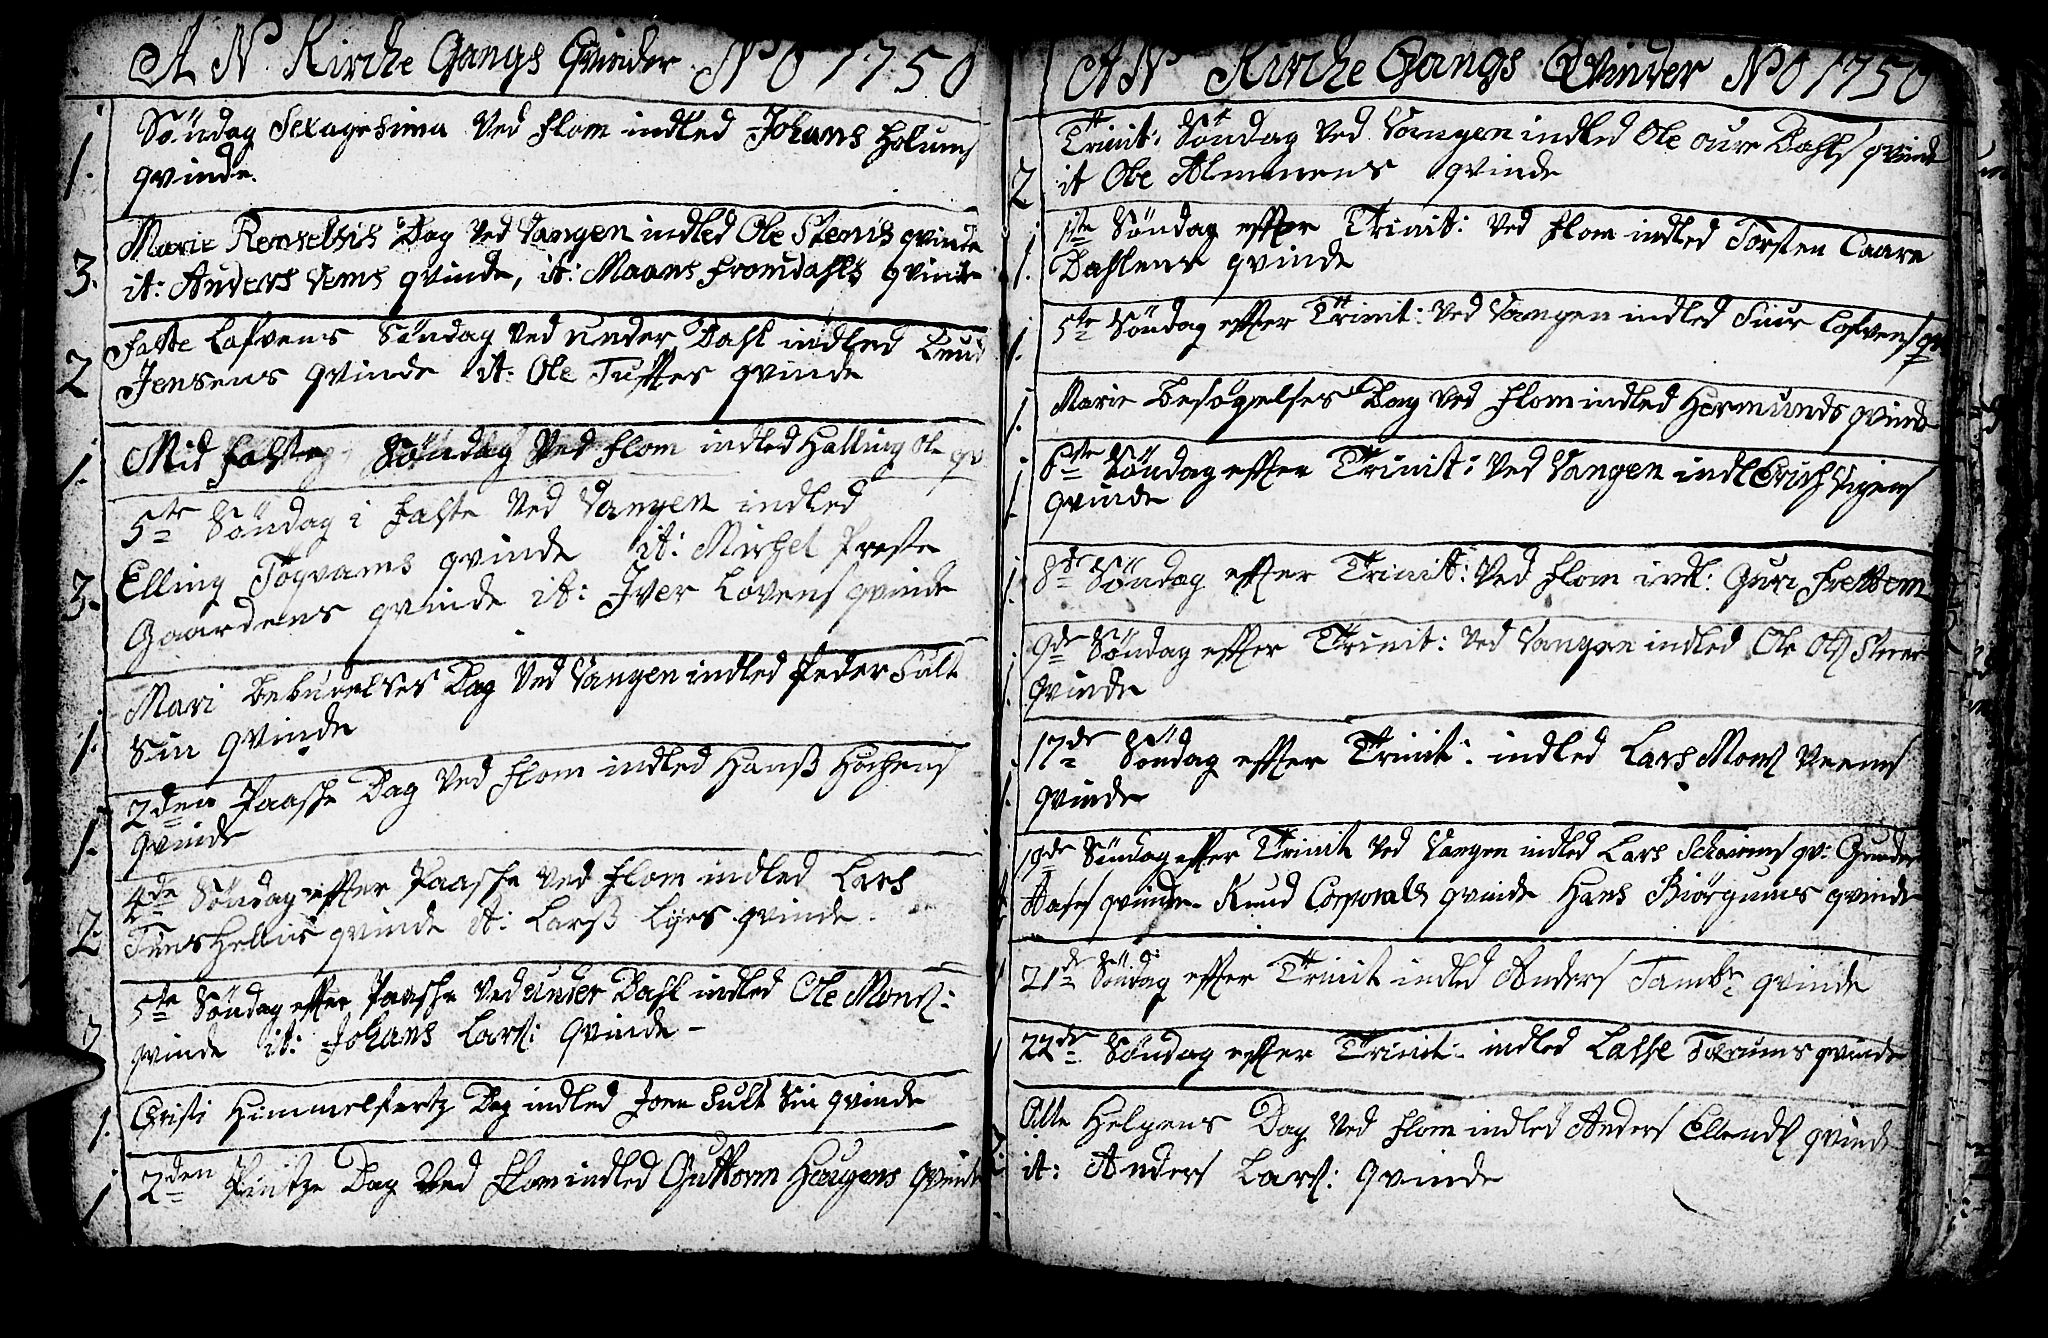 AN Kirche Gangs Qvinder No 1750
1. Søndag Sexagesima ved Flom indled Johans Holums
qvinde.
3. Marie Renselsis Dag ved Vangen indled Ole Stenis qvinde
it: Anders Vems qvinde, it: Maans Fromdahls qvinde
2 Faste Lafvens Søndag ved under Dahl indled Knud
Jensens qvinde it: Ole Tuftes qvinde
1. Mid Faste Søndag ved Flom indled Halling Ole qv
5te Søndag i Faste ved Vangen indled
3. Elling Togvams qvinde it: Michel Preste
Gaardens qvinde it: Iver Lovens qvinde
Mari Bebudelses Dag ved Vangen indled Peder Hult
1. Sin qvinde
2den Paaske Dag ved Flom indled Hanß Hochens
1. qvinde
4de Søndag efter Paaske ved Flom indled Lars
2. qvinde it: Larß qvinde.
5te Søndag efter Paaske ved under Dahl indled Ole Mons:
2 qvinde it: Johans Lars: qvinde -
1. Christi Himmelfartz Dag indled Joen Hult Sin qvinde
1 2den Pintze Dag ved Flom indled Guttorm Haugens qvinde
AN Kirche Gangs Qvinder No 1750
Trinit: Søndag ved Vangen indled Ole oure Dahls qvinde
2 it Ole Almmens qvinde
1ste Søndag efter Trinit: ved Flom indled Torsten Caare
1. Dahlens qvinde
1. 5te Søndag efter Trinit: ved Vangen indled Siur Lofvens qv
1. Marie Besøgelses Dag ved Flom indled Hermunds qvinde
6te Søndag efter Trinit: ved Vangen indl Erich Vigens
1. qvinde
1. 8de Søndag efter Trinit: ved Flom indl: Guri Frettem
9de Søndag efter Trinit: ved Vangen indled Ole Ols
1 qvinde
17de Søndag efter Trinit: indled Lars Mons Veems
1. qvinde
19de Søndag efter Trinit ved Vangen indled Lars qv: Gunder
4 Aases qvinde. Knud Corporals qvinde Hans Biørgums qvinde
1 21de Søndag efter Trinit indled Anders Tambr qvinde
1 22de Søndag efter Trinit: indled Lasse qvinde
Alle Helgens Dag ved Flom indled Anders Ellends qvinde
2. it: Anders Lars: qvinde